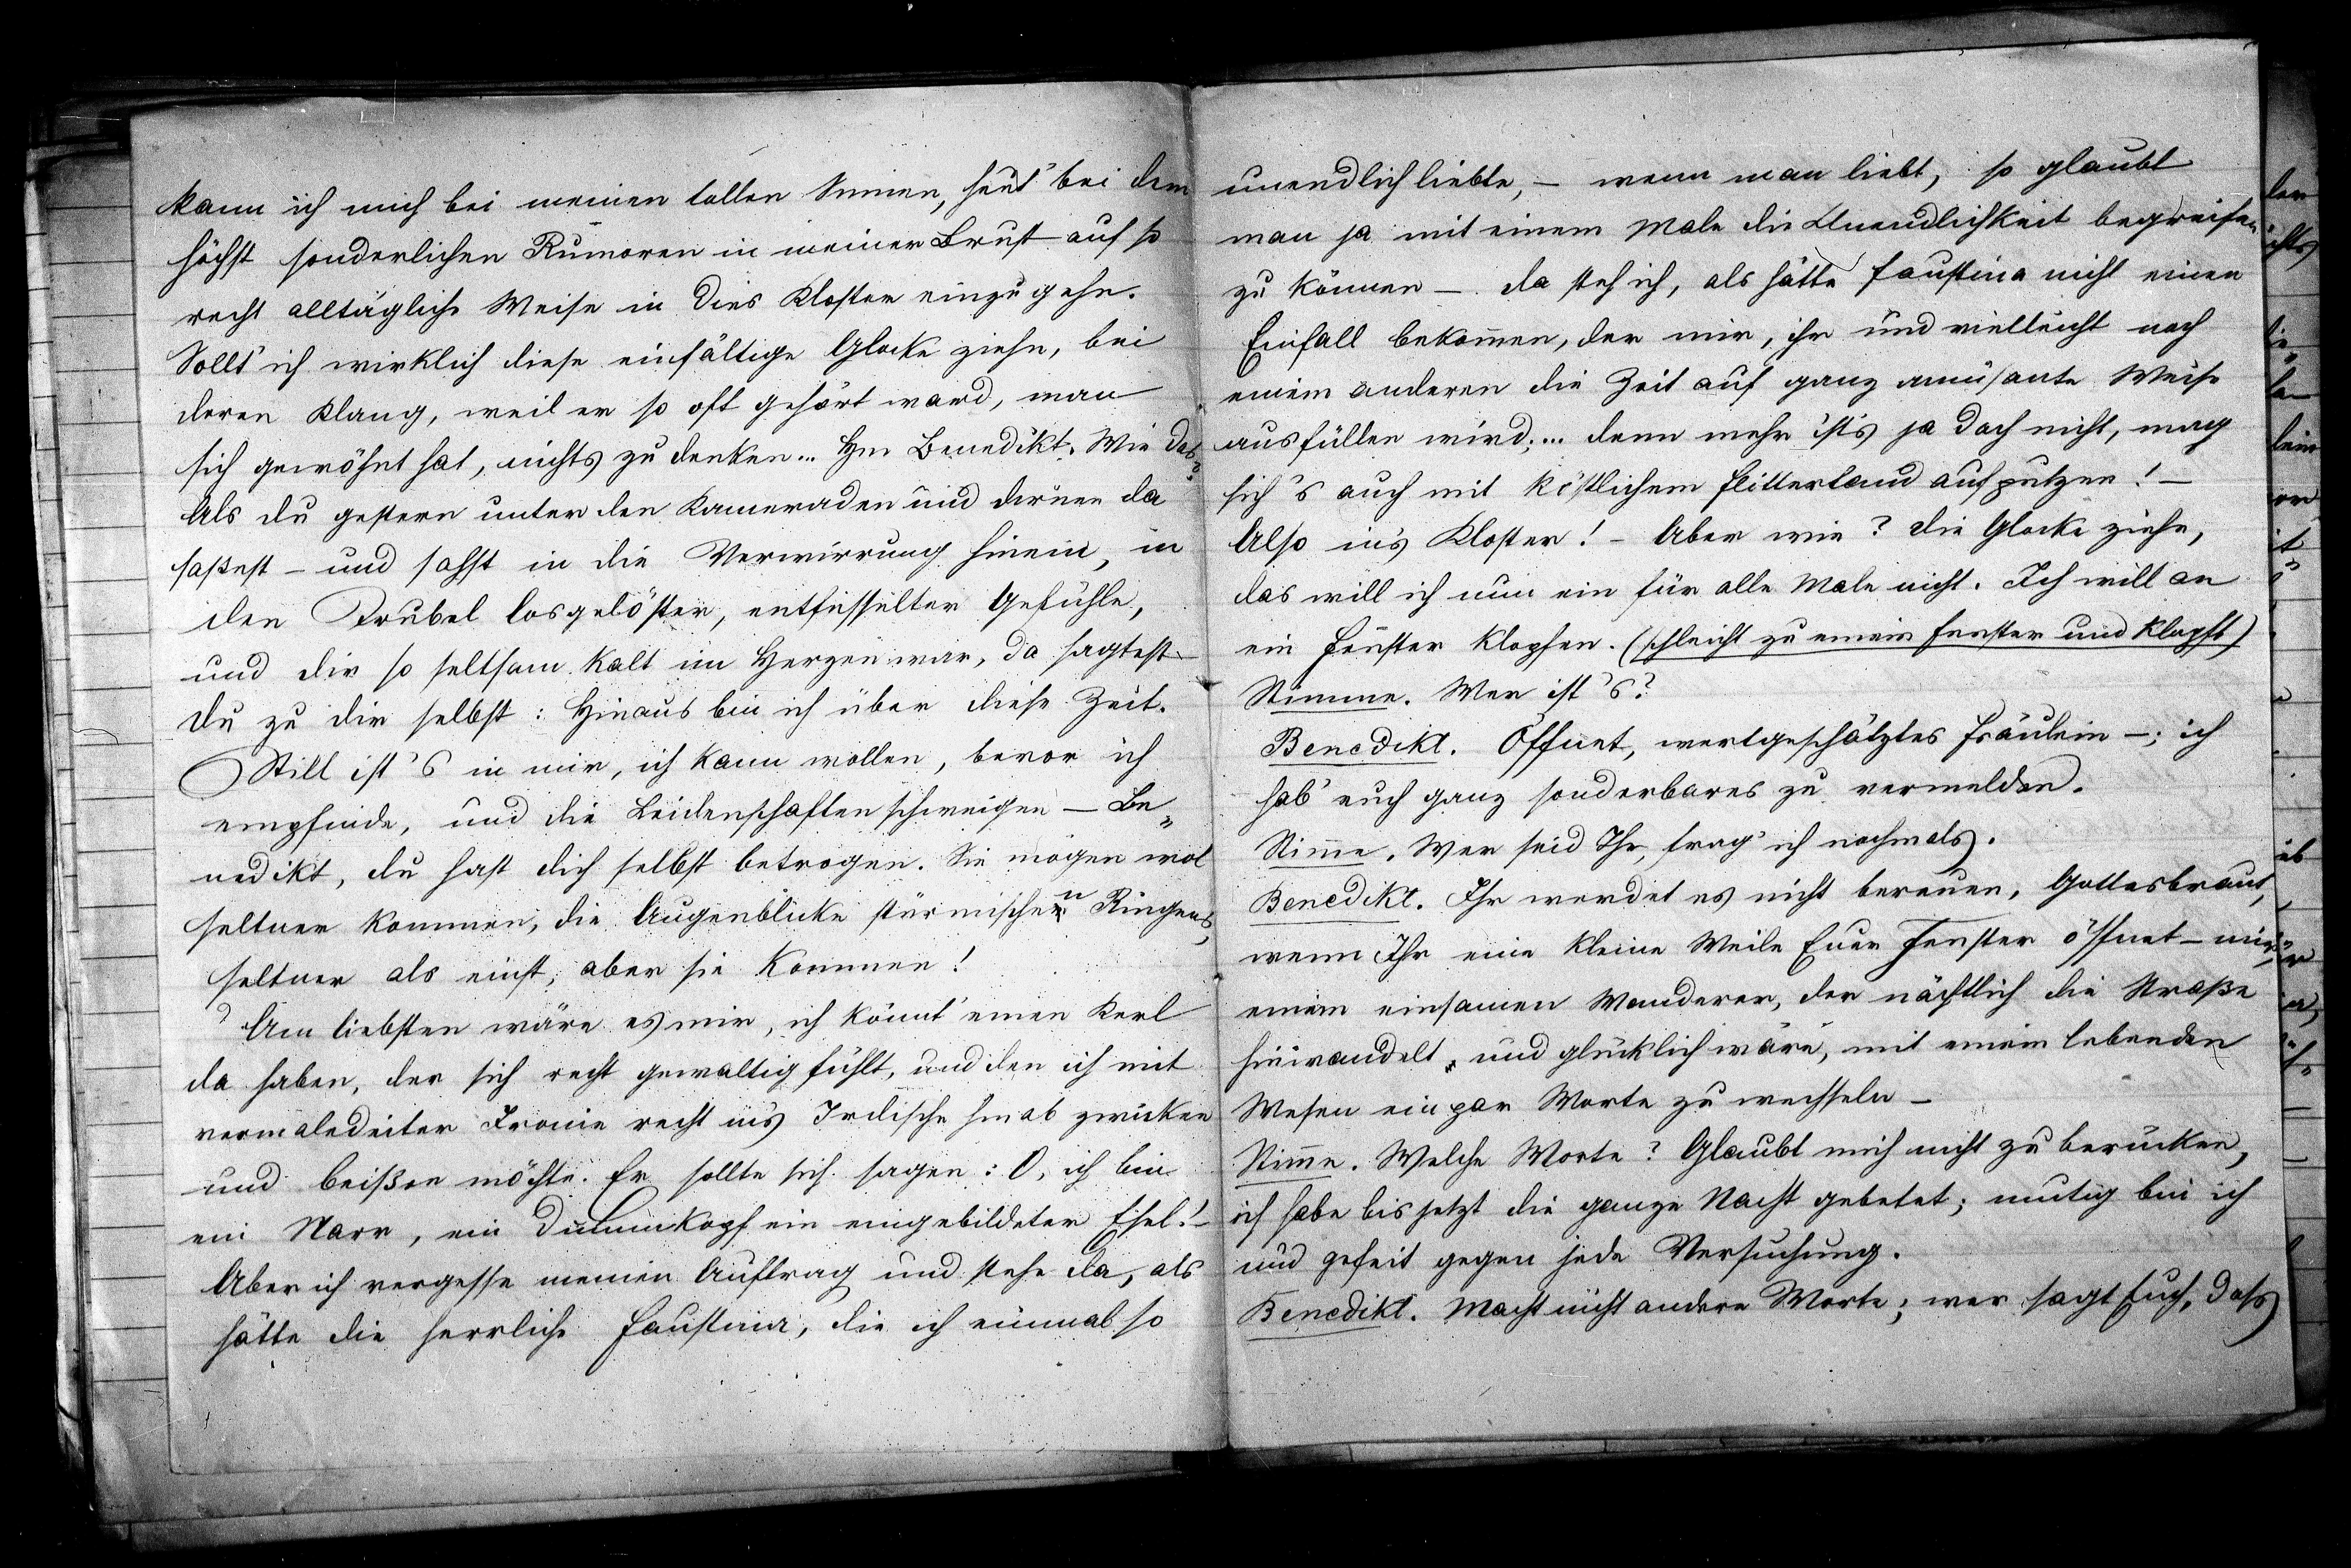 kann ich mich bei meinen tollen Sinnen, heut' bei dem
höchst sonderlichen Rumoren in meiner Brust auf so
recht alltägliche Weise in dies Kloster einzugehn.
Sollt' ich wirklich diese einfältige Glocke ziehn, bei
deren Klang, weil er so oft gehört ward, man
sich gewöhnt hat, nichts zu denken... Hm Benedikt. Wie das?
Als du gestern unter den Kameraden und Dirnen da
saßest – und sahst in die Verwirrung hinein, in
den Trubel losgelöster, entfesselter Gefühle,
und dir so seltsam kalt im Herzen war, da sagtest
du zu dir selbst: Hinaus bin ich über diese Zeit.
Still ist's in mir, ich kann wollen, bevor ich
empfinde, und die Leidenschaften schweigen – Be„
nedikt, du hast dich selbst betrogen. Sie mögen wol
seltner kommen, die Augenblicke stürmischen Ringens,
seltner als einst, aber sie kommen!
Am liebsten wäre es mir, ich könnt' einen Kerl
da haben, der sich recht gewaltig fühlt, und den ich mit
vermaledeiter Ironie recht in's Irdische hinab zwicken
und beißen möchte. Er sollte sich sagen: O, ich bin
ein Narr, ein Dummkopf ein eingebildeter Esel! –
Aber ich vergesse meinen Auftrag und stehe da, als
hätte die herrliche Faustina, die ich einmal so
unendlich liebte, – wenn man liebt, so glaubt
man ja mit einem Male die Unendlichkeit begreifen
zu können –. Da steh ich, als hätte Faustina nicht einen
Einfall bekommen, der mir, ihr und vielleicht noch
einem anderen die Zeit auf ganz amüsante Weise
ausfüllen wird;... denn mehr ist's ja doch nicht, mag
sich's auch mit köstlichem Flittertand aufputzen! –
Also in's Kloster! – Aber wie? Die Glocke ziehn,
das will ich nun ein für alle Male nicht. Ich will an
ein Fenster klopfen. (schleicht zu einem Fenster und klopft)
Stimme. Wer ist's?
Benedikt. Öffnet, wertgeschätztes Fräulein –; ich
hab' euch ganz sonderbares zu vermelden.
Stimme. Wer seid Ihr, frag' ich nochmals.
Benedikt. Ihr werdet es nicht bereuen, Gottesbraut,
wenn Ihr eine kleine Weile Euer Fenster öffnet – mir,
einem einsamen Wanderer, der nächtlich die Straße
hinwandelt, und glücklich wäre, mit einem lebenden
Wesen ein par Worte zu wechseln –
Stimme. Welche Worte? Glaubt mich nicht zu berücken,
ich habe bis jetzt die ganze Nacht gebetet; mutig bin ich
und gefeit gegen jede Versuchung.
Benedikt. Macht nicht andere Worte; wer sagt Euch, dass